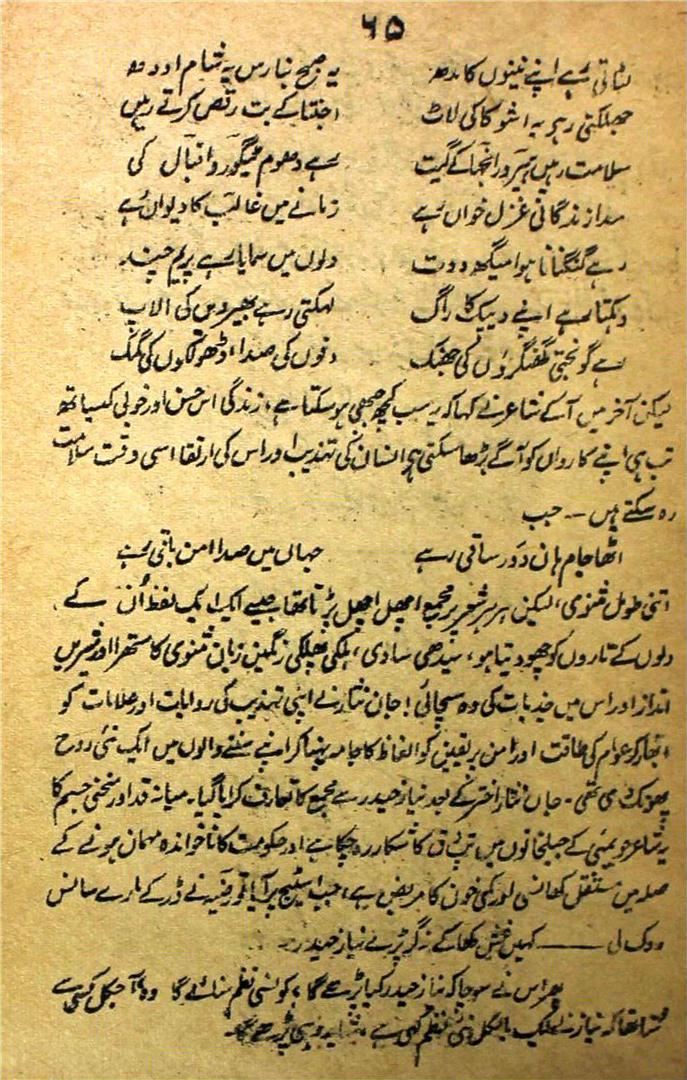 ۶۵
لٹاتی رہے اپنے نینوں کا مدھ یہ صبح بنارس یہ شام اودھ
جھلکتی رہے یہ اشوکا کی لاٹ اجنتا کے بت رقص کرتے رہیں
سلامت رہیں ہیر و رانجھا کے گیت رہے دھوم ٹیگور و اقبال کی
سدا زندگانی غزل خواں رہے زمانے میں غالب کا دیواں رہے
رہے گنگناتا ہوا میگھ دوت دلوں میں سمایا رہے پریم چند
دہکتا رہے اپنے دیپک کا راگ لہکتی رہے بھیرویں کی الاپ
رہے گونجتی گھنگروؤں کی جھنک دفوں کی صدا، ڈھولکوں کی گمک
لیکن آخر میں آکے شاعر نے کہا کہ یہ سب کچھ جبھی ہو سکتا ہے، زندگی اس حسن اور خوبی کیساتھ
تب ہی اپنے کارواں کو آگے بڑھا سکتی ہے انسان کی تہذیب اور اس کی ارتقا اسی وقت سلامت
رہ سکتے ہیں — جب
اٹھا جام ہاں دَور ساقی رہے جہاں میں صدا امن باقی رہے
اتنی طویل مثنوی، لیکن ہر ہر شعر پر مجمع اچھل اچھل پڑتا تھا جیسے ایک ایک لفظ اُن کے
دلوں کے تاروں کو چھو دیتا ہو، سیدھی سادی، ہلکی پھلکی رنگین زبان مثنوی کا ستھرا اور شیریں
انداز اور اس میں جذبات کی وہ سچائی! جان نثار نے اپنی تہذیب کی روایات اور علامات کو
ابھار کر عوام کی طاقت اور امن پر یقین کو الفاظ کا جامہ پہنا کر اپنے سننے والوں میں ایک نئی روح
پھونک دی تھی۔ جاں نثار اختر کے بعد نیاز حیدر سے مجمع کا تعارف کرایا گیا۔ میانہ قد اور منحنی جسم کا
یہ شاعر جو بمبئی کے جیلخانوں میں تپ دق کا شکار رہ چکا ہے اور حکومت کا ناخواندہ مہمان ہونے کے
صلہ میں مستقل کھانسی اور کمی خون کا مریض ہے، جب اسٹیج پر آیا تو رضیہ نے ڈر کے مارے سانس
روک لی —— کہیں غش کھا کے نہ گر پڑے نیاز حیدر۔
پھر اس نے سوچا کہ نیاز حیدر کیا پڑھے گا، کونسی نظم سنائے گا وہ؟ آجکل کسی سے
سنا تھا کہ نیاز نے ایک بالکل نئی نظم کہی ہے، شاید وہی پڑھے گا۔